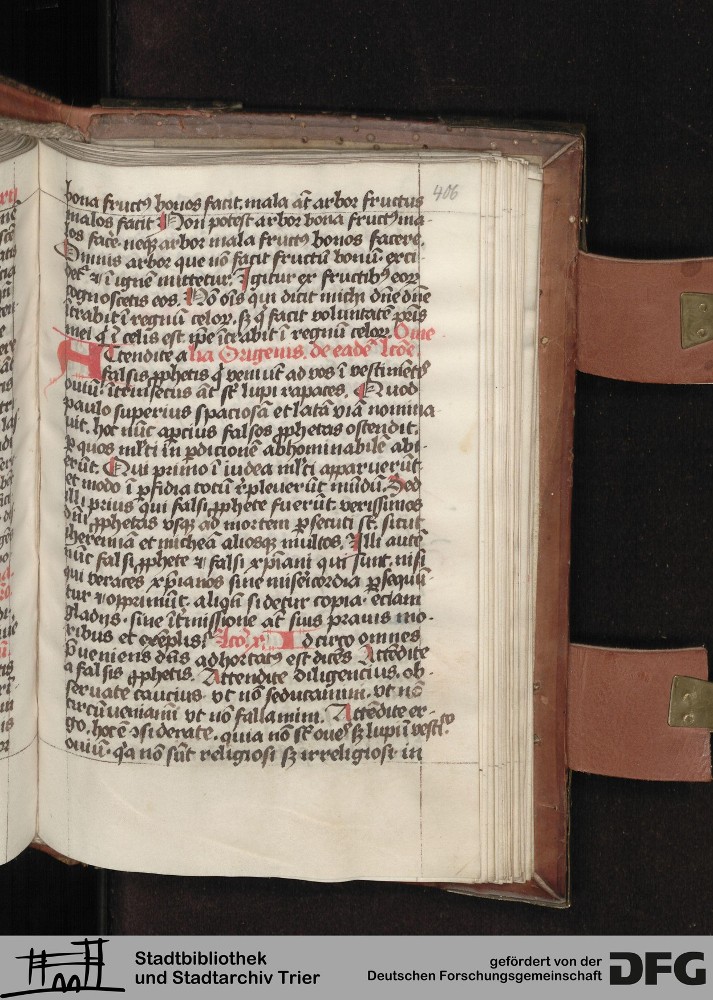 406
bona fruct⁹ bonos facit. mala at̄ arbor fructus
malos facit Non potest arbor bona fruct⁹ ma-
los face̛. neqꝫ arbor mala fruct⁹ bonos facere.
Omnis arbor que nō facit fructū bonū. exci-
det̛ ⁊ ī ignē mittetur. Igitur ex fructibꝫ eoꝝ
cognoscetis eos. Nō oīs qui dicit michi dn̄e dn̄e
ītrabit ī regnū celoꝝ. sꝫ q̇ facit voluntatē pr̄is
mei q̇ ī celis est ip̄e ītrabit ī regnū celoꝝ. Ome-
Attendite a lia Origenis. de eadē lcōe
falsis ꝓphetis q̇ veniūt ad vos ī vestimētꝭ
ouiū. ītrinsecus at̄ st̄ lupi rapaces. Quod
paulo superius spaciosā et latā viā nomina-
uit. hoc nūc apcius falsos ꝓphetas ostendit.
ꝑ quos ml̄ti īn ꝑdicionē abhominabilē abi-
erūt. Qui primo ī iudea ml̄ti apparuerūt
et modo ī ꝑfidia totū repleuerūt mūdū. Sed
illi prius qui falsi ꝓphete fuerūt. verissimos
dn̄i ꝓphetas vsqꝫ ad mortem ꝑsecuti st̄. sicut
iheremiā et micheā aliosqꝫ multos. Illi autē
nūc falsi ꝓphete ⁊ falsi xp̄iani qui sunt. nisi
qui veraces xp̄ianos sine misericordia ꝑsequū-
tur ⁊ opprimūt. aliqn̄ si detur copia. eciam
gladijs. sine ītermissione at̄ suis prauis mo-
ribus et exēplis. Lco. x. Idcirco omnes
p̄ueniens dn̄s adhortat⁹ est dicēs Attēdite
a falsis ꝓphetis. Attendite diligencius. ob-
seruate caucius. vt nō seducamini. vt nō
circūueniami vt nō fallamini. Attēdite er-
go. hoc ē ꝯsiderate. quia nō st̄ oues sꝫ lupi ī vesti.to
ouiū. q̇a nō sūt religiosi sꝫ irreligiose in
Stadtbibliothek
und Stadtarchiv Trier
gefördert von der
Deutschen Forschungsgemeinschaft
DFG